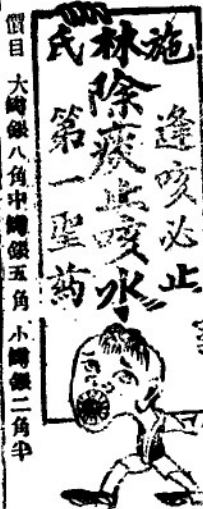 施林氏
逢咳必止
除痰止咳水
第一聖葯
價目 大罇銀八角中罇銀五角 小罇銀二角半